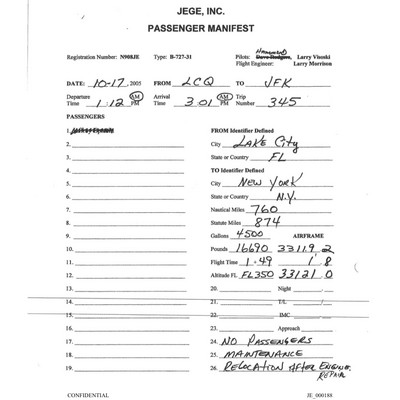 JEGE, INC.
PASSENGER MANIFEST
Hammond
Registration Number: N908JE Type: B-727-31 Pilots: Dave Rodgers, Larry Visoski
Flight Engineer: Larry Morrison
DATE: 10-17, 2005 FROM LCQ TO JFK
Departure Time 1:12 AM PM Arrival Time 3:01 AM PM Trip Number 345
PASSENGERS
1. FROM Identifier Defined
2. City LAKE CITY
3. State or Country FL
4. TO Identifier Defined
5. City NEW YORK
6. State or Country N.Y.
7. Nautical Miles 760
8. Statute Miles 874
9. Gallons 4500 AIRFRAME
10. Pounds 16690 33119.2
11. Flight Time 1:49 1.8
12. Altitude FL FL350 33121.0
13. 20. Night
14. 21. T/L
15. 22. IMC
16. 23. Approach
17. 24. NO PASSENGERS
18. 25. MAINTENANCE
19. 26. RELOCATION AFTER ENGINE
REPAIR
CONFIDENTIAL JE_000188